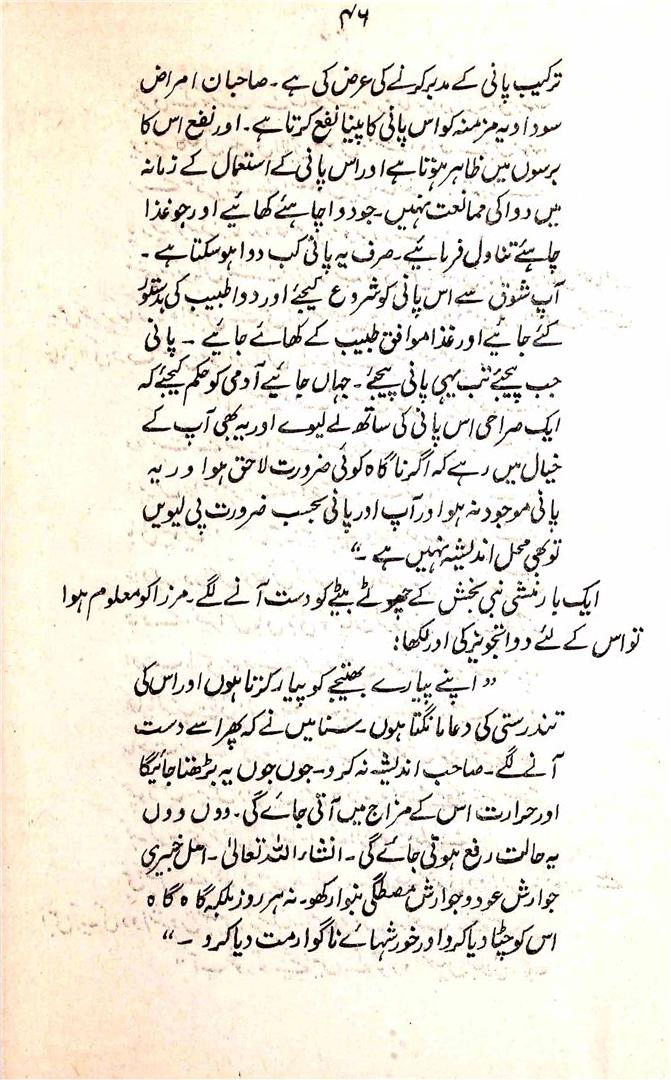 ۴۶
ترکیب پانی کے مدبر کرنے کی عرض کی ہے۔ صاحبان امراض
سوداویہ مزمنہ کو اس پانی کا پینا نفع کرتا ہے۔ اور نفع اس کا
برسوں میں ظاہر ہوتا ہے اور اس پانی کے استعمال کے زمانہ
میں دوا کی ممانعت نہیں۔ جو دوا چاہئے کھائیے اور جو غذا
چاہئے تناول فرمائیے۔ صرف یہ پانی کب دوا ہو سکتا ہے۔
آپ شوق سے اس پانی کو شروع کیجئے اور دوا طبیب کی بدستور
کئے جائیے اور غذا موافق طبیب کے کھائے جائیے۔ پانی
جب پیجئے تب یہی پانی پیجئے۔ جہاں جائیے آدمی کو حکم کیجئے کہ
ایک صراحی اس پانی کی ساتھ لے لیوے اور یہ بھی آپ کے
خیال میں رہے کہ اگر ناگاہ کوئی ضرورت لاحق ہو اور یہ
پانی موجود نہ ہو اور آپ اور پانی بحسب ضرورت پی لیویں
تو بھی محل اندیشہ نہیں ہے۔“
ایک بار منشی نبی بخش کے چھوٹے بیٹے کو دست آنے لگے۔ مرزا کو معلوم ہوا
تو اس کے لئے دوا تجویز کی اور لکھا:
”اپنے پیارے بھتیجے کو پیار کرتا ہوں اور اس کی
تندرستی کی دعا مانگتا ہوں۔ سنا میں نے کہ پھر اسے دست
آنے لگے۔ صاحب اندیشہ نہ کرو۔ جوں جوں یہ بڑھتا جائیگا
اور حرارت اس کے مزاج میں آتی جائے گی۔ ووں ووں
یہ حالت رفع ہوتی جائے گی۔ انشاء اللہ تعالیٰ۔
جوارش عود و جوارش مصطگی بنوا رکھو۔ نہ ہر روز بلکہ گاہ گاہ
اس کو چٹا دیا کرو اور خورشہائے ناگوار مت دیا کرو۔“